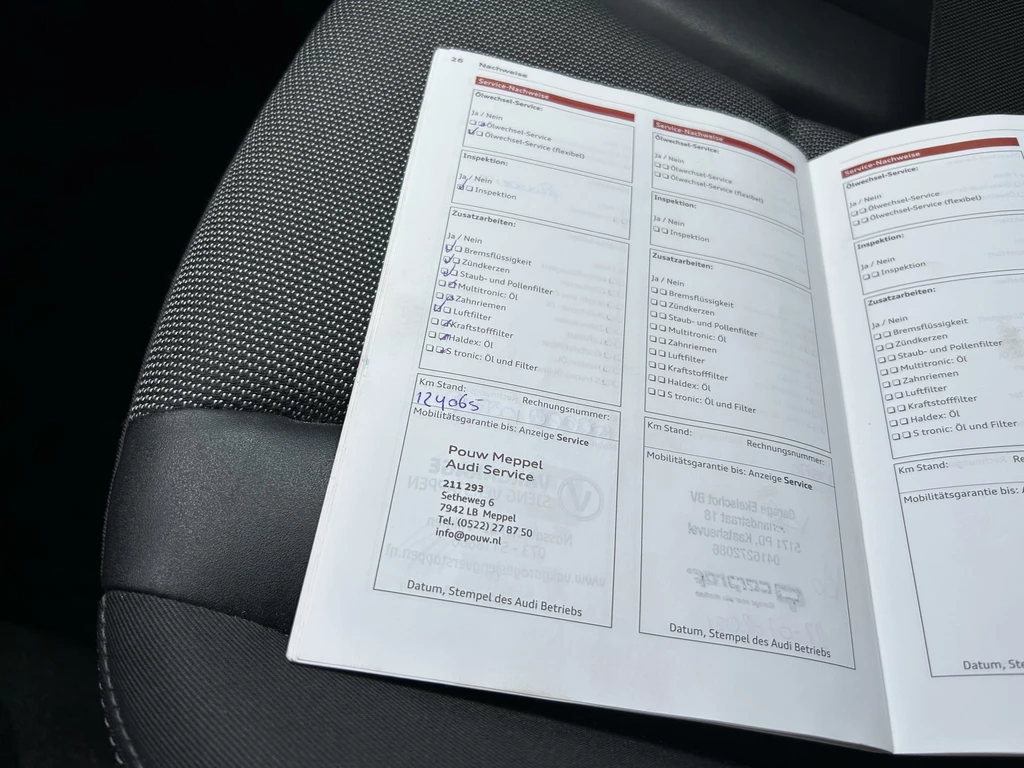 26 Nachweise
Service-Nachweise
Ölwechsel-Service:
Ja / Nein
Ölwechsel-Service
Ölwechsel-Service (flexibel)
Inspektion:
Ja / Nein
Inspektion
Zusatzarbeiten:
Ja / Nein
Bremsflüssigkeit
Zündkerzen
Staub- und Pollenfilter
Multitronic: Öl
Zahnriemen
Luftfilter
Kraftstofffilter
Haldex: Öl
S tronic: Öl und Filter
Km Stand: Rechnungsnummer:
124065
Mobilitätsgarantie bis: Anzeige Service
Pouw Meppel
Audi Service
211 293
Setheweg 6
7942 LB Meppel
Tel. (0522) 27 87 50
info@pouw.nl
Datum, Stempel des Audi Betriebs
Service-Nachweise
Ölwechsel-Service:
Ja / Nein
Ölwechsel-Service
Ölwechsel-Service (flexibel)
Inspektion:
Ja / Nein
Inspektion
Zusatzarbeiten:
Ja / Nein
Bremsflüssigkeit
Zündkerzen
Staub- und Pollenfilter
Multitronic: Öl
Zahnriemen
Luftfilter
Kraftstofffilter
Haldex: Öl
S tronic: Öl und Filter
Km Stand: Rechnungsnummer:
Mobilitätsgarantie bis: Anzeige Service
Datum, Stempel des Audi Betriebs
Service-Nachweise
Ölwechsel-Service:
Ja / Nein
Ölwechsel-Service
Ölwechsel-Service (flexibel)
Inspektion:
Ja / Nein
Inspektion
Zusatzarbeiten:
Ja / Nein
Bremsflüssigkeit
Zündkerzen
Staub- und Pollenfilter
Multitronic: Öl
Zahnriemen
Luftfilter
Kraftstofffilter
Haldex: Öl
S tronic: Öl und Filter
Km Stand: Re
Mobilitätsgarantie bis:
Datum, Ste